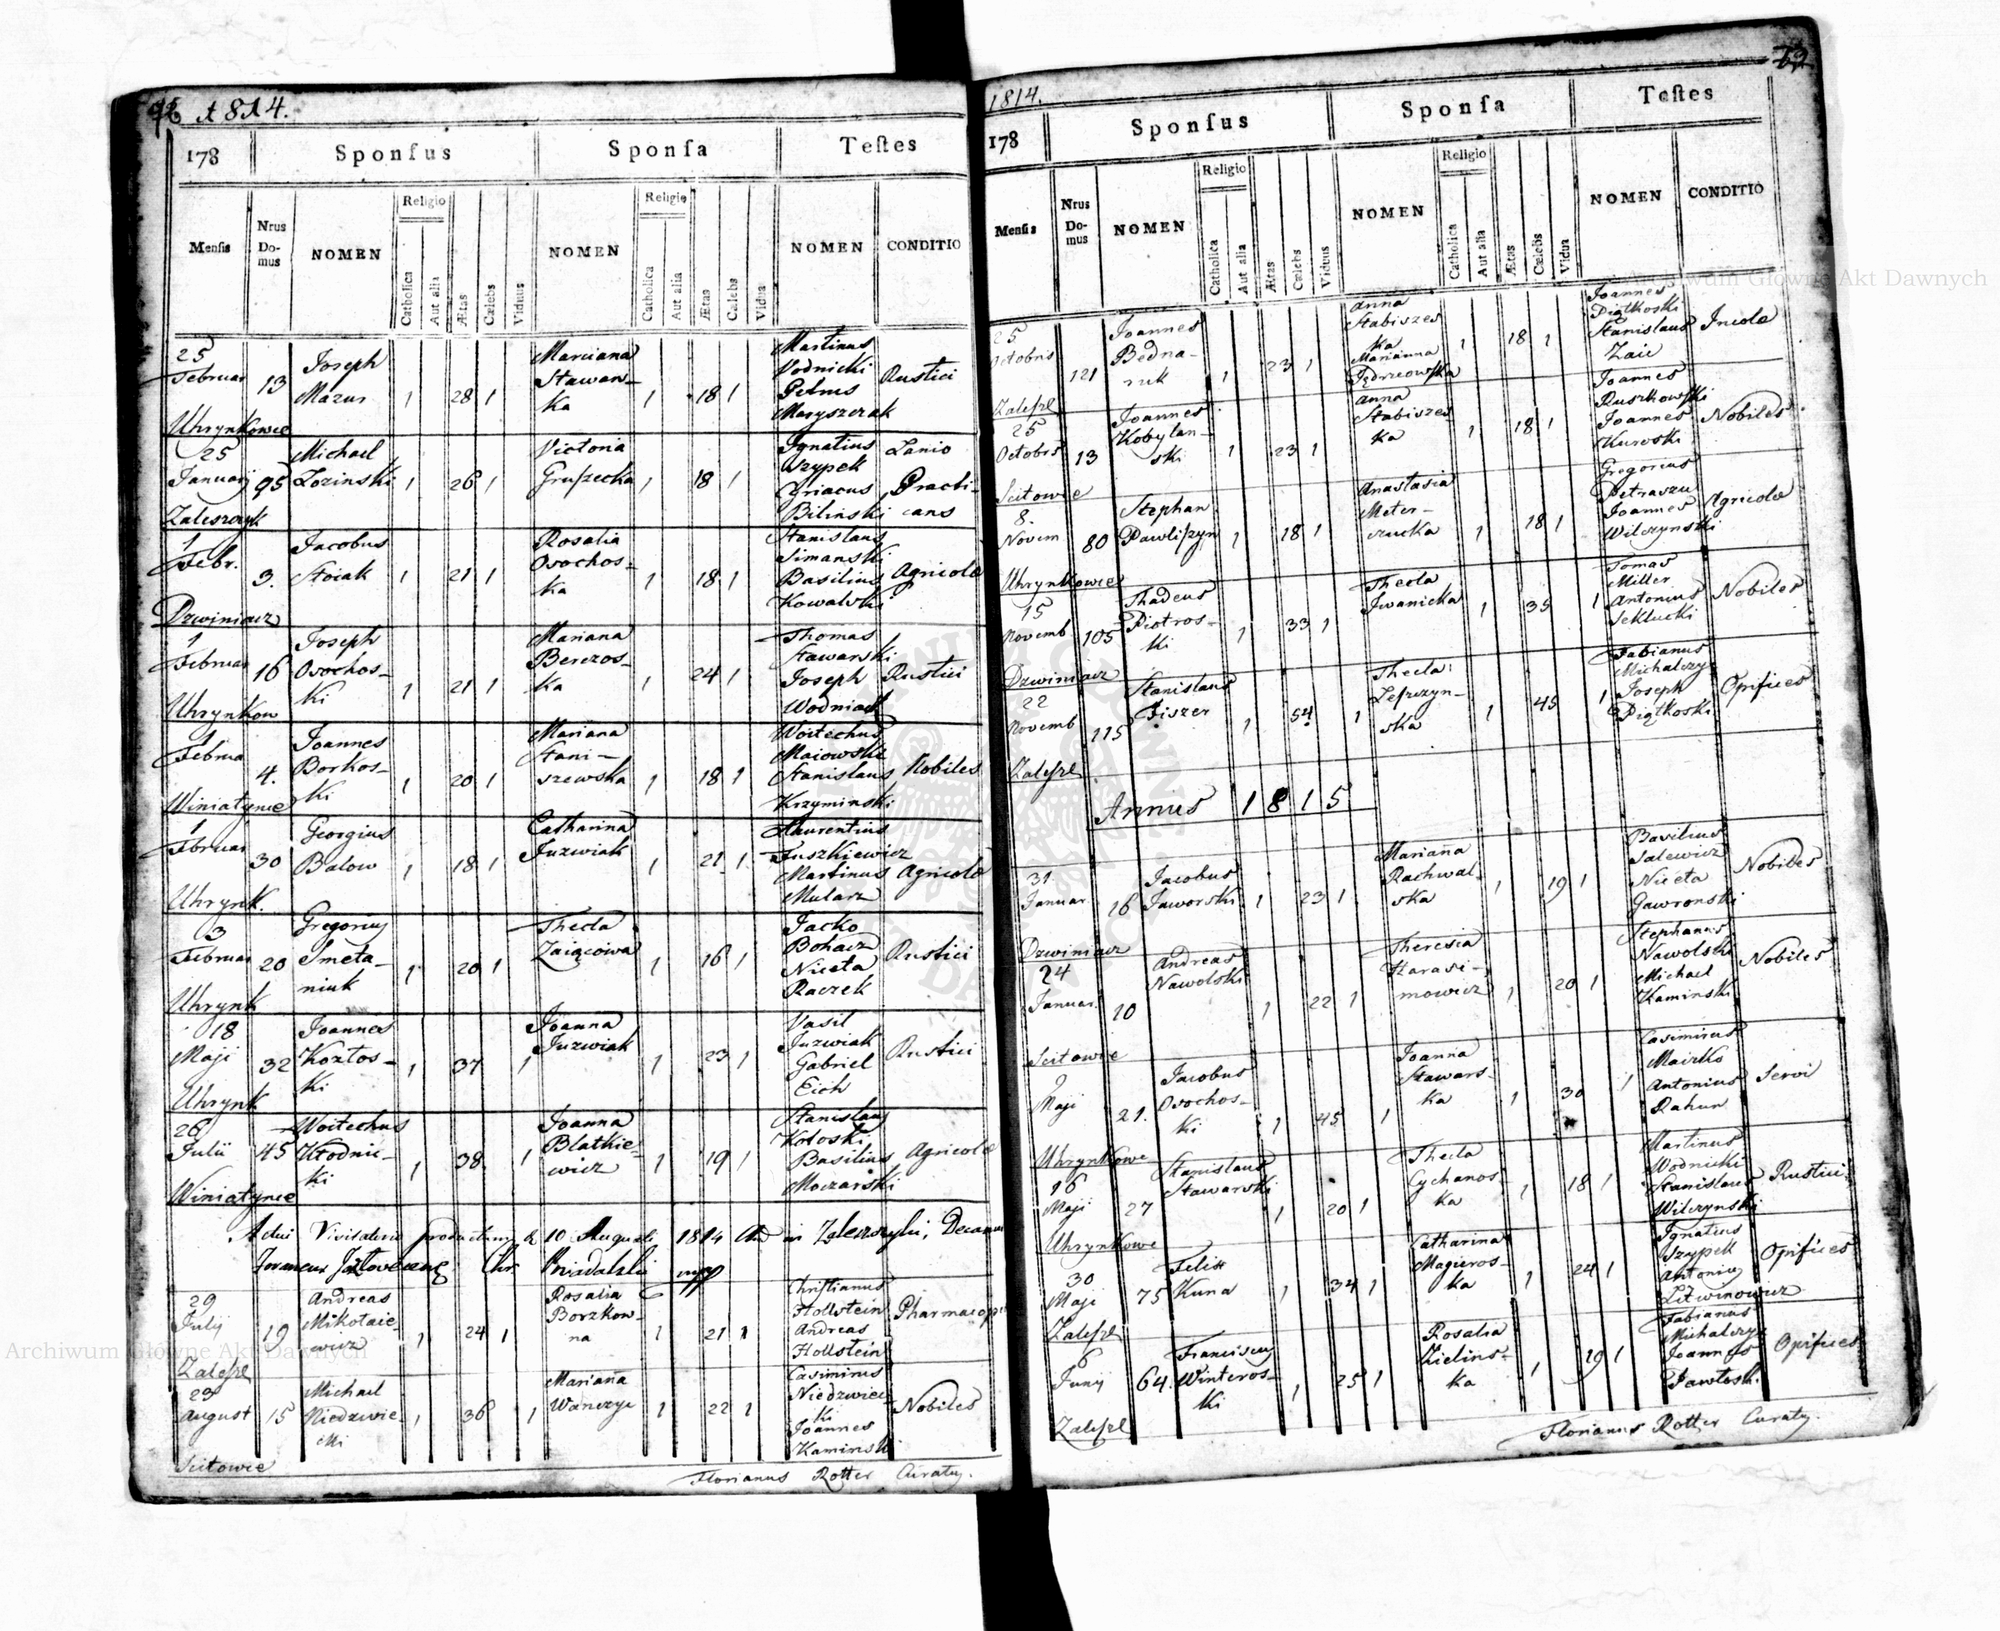 1814.
178 Sponsus Sponsa Testes
Mensis Nrus Domus NOMEN Religio Catholica Aut alia Ætas Cælebs Viduus NOMEN Religio Catholica Aut alia Ætas Cælebs Vidua NOMEN CONDITIO
25 Februar Uhrynkowce 13 Joseph Mazur 1 28 1 Marciana Stawanka 1 18 1 Martinus Vodnicki Petrus Maryszczak Rustici
25 Januarij Zaleszczyk 95 Michael Lozinski 1 26 1 Victoria Gruszecka 1 18 1 Ignatius Szypek Cyriacus Bilinski Lanio Practicans
1 Febr. Dzwiniacz 3. Jacobus Stoiak 1 21 1 Rosalia Osochoska 1 18 1 Stanislaus Simanski Basilius Kowalski Agricolæ
1 Februar Uhrynkow 16 Joseph Osochoski 1 21 1 Mariana Berezoska 1 24 1 Thomas Stawarski Joseph Wodniack Rustici
1 Februa Winiatynce 4. Joannes Borkoski 1 20 1 Mariana Staniszewska 1 18 1 Woitechus Maiowski Stanislaus Krzyminski Nobiles
1 Februar Uhrynk. 30 Georgius Balow 1 18 1 Catharina Juzwiak 1 21 1 Laurentius Juszkiewicz Martinus Mularz Agricolæ
3 Februar Uhrynk 20 Gregorius Smetaniuk 1 20 1 Thecla Zaiącowa 1 16 1 Jacko Bohacz Niceta Raczek Rustici
18 Maji Uhrynk 32 Joannes Koztoski 1 37 1 Joanna Juzwiak 1 23 1 Vasil Juzwiak Gabriel Eich Rustici
26 Julii Winiatynce 45 Woitechus Wodnicki 1 38 1 Joanna Blatkiewicz 1 19 1 Stanislaus Kotoski Basilius Moczarski Agricolæ
Actui Visitationis 10 Augusti 1814 in Decanus
29 Julij Zaleszl 19 Andreas Mikołaiewicz 1 24 1 Rosalia Borzkowna 1 21 1 Christianus Hollstein Andreas Hollstein Pharmacop
29 August Scitowce 15 Michael Niedzwiecki 1 36 1 Mariana Wanczyc 1 22 1 Casimirus Niedzwiecki Joannes Kaminski Nobiles
Florianus Rotter Curatus.
1814.
178 Sponsus Sponsa Testes
Mensis Nrus Domus NOMEN Religio Catholica Aut alia Ætas Cælebs Viduus NOMEN Religio Catholica Aut alia Ætas Cælebs Vidua NOMEN CONDITIO
25 Octobris Zaleszl 121 Joannes Bednaruk 1 23 1 Anna Stabiszeska Marianna Jędrzeowska 1 18 1 Joannes Piątkoski Stanislaus Zaic Incolæ
25 Octobris Scitowce 13 Joannes Kobylanski 1 23 1 Anna Stabiszeska 1 18 1 Joannes Ruszkowski Joannes Kuroski Nobiles
8. Novem Uhrynkowce 80 Stephan Pawliszyn 1 18 1 Anastasia Meterszucka 1 18 1 Gregorius Petraszu Joannes Wilczynski Agricolæ
15 Novemb Dzwiniacz 105 Thadeus Piotroski 1 33 1 Thecla Iwanicka 1 35 1 Tomas Miller Antonius Seklucki Nobiles
22 Novemb Zaleszl 115 Stanislaus Fiszer 1 54 1 Thecla Leszczynska 1 45 1 Fabianus Michalczy Joseph Piątkoski Opifices
Annus 1815
31 Januar. Dzwiniacz 16 Jacobus Jaworski 1 23 1 Mariana Rachwalska 1 19 1 Basilius Salewicz Niceta Gawronski Nobiles
24 Januar. Scitowce 10 Andreas Nawolski 1 22 1 Theresia Harasimowicz 1 20 1 Stephanus Nawolski Michael Kaminski Nobiles
2 Maji Uhrynkowce 21. Jacobus Osochoski 1 45 1 Joanna Stawarska 1 30 1 Casimirus Maizko Antonius Rahun Servi
16 Maji Uhrynkowce 27 Stanislaus Stawarski 1 20 1 Thecla Cychanoska 1 18 1 Martinus Wodnicki Stanislaus Wilczynski Rustici
30 Maji Zaleszl 75 Felix Kuna 1 34 1 Catharina Magieroska 1 24 1 Ignatius Szypek Antonius Litwinowicz Opifices
6 Junij Zaleszl 64. Franciscus Winteroski 1 25 1 Rosalia Zielinska 1 19 1 Fabianus Michalczyc Joannes Pawłosk. Opifices
Florianus Rotter Curatus.
Archiwum Główne Akt Dawnych
Archiwum Główne Akt Dawnych